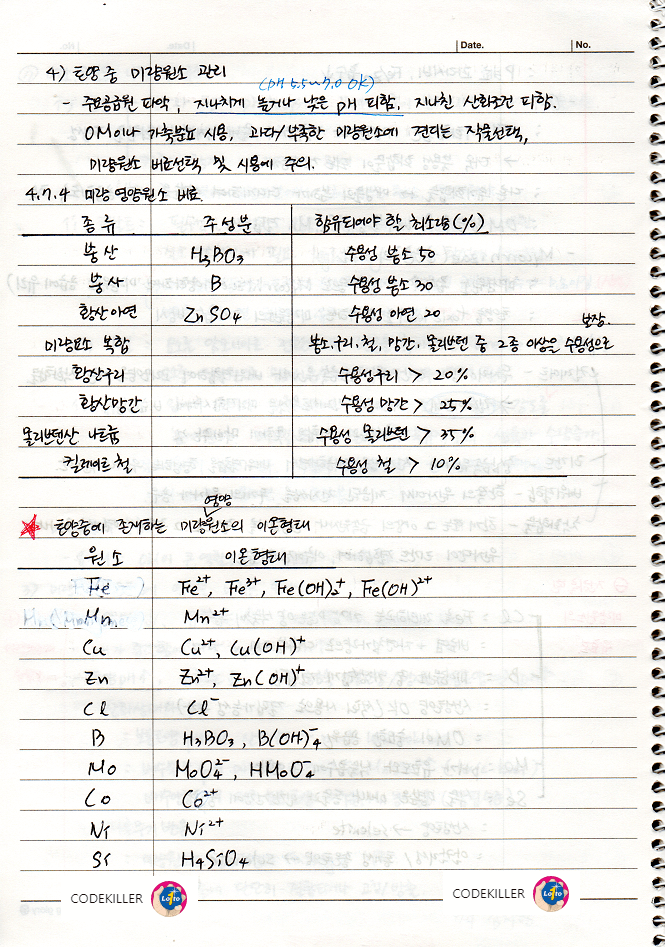 Date. No.
4) 토양 중 미량원소 관리
(pH 5.5~7.0 OK)
- 주요공급원 파악, 지나치게 높거나 낮은 pH 피함, 지나친 산화조건 피함.
OM이나 가축분뇨 시용, 과다/부족한 미량원소에 견디는 작물선택,
미량원소 비료선택 및 시용에 주의.
4.7.4 미량 영양원소 비료.
종류 주성분 함유되어야 할 최소량(%)
붕산 H3BO3 수용성 붕소 50
붕사 B 수용성 붕소 30
황산아연 ZnSO4 수용성 아연 20
미량요소 복합 붕소, 구리, 철, 망간, 몰리브덴 중 2종 이상을 수용성으로 보장.
황산구리 수용성구리 > 20%
황산망간 수용성 망간 > 25%
몰리브덴산 나트륨 수용성 몰리브덴 > 35%
킬레이트 철 수용성 철 > 10%
★ 토양중에 존재하는 미량영양원소의 이온형태
원소 이온형태
Fe Fe2+, Fe3+, Fe(OH)2+, Fe(OH)2+
Mn Mn2+
Cu Cu2+, Cu(OH)+
Zn Zn2+, Zn(OH)+
Cl Cl-
B H3BO3, B(OH)4-
Mo MoO42-, HMoO4-
Co Co2+
Ni Ni2+
Si H4SiO4
CODEKILLER Lotto CODEKILLER Lotto